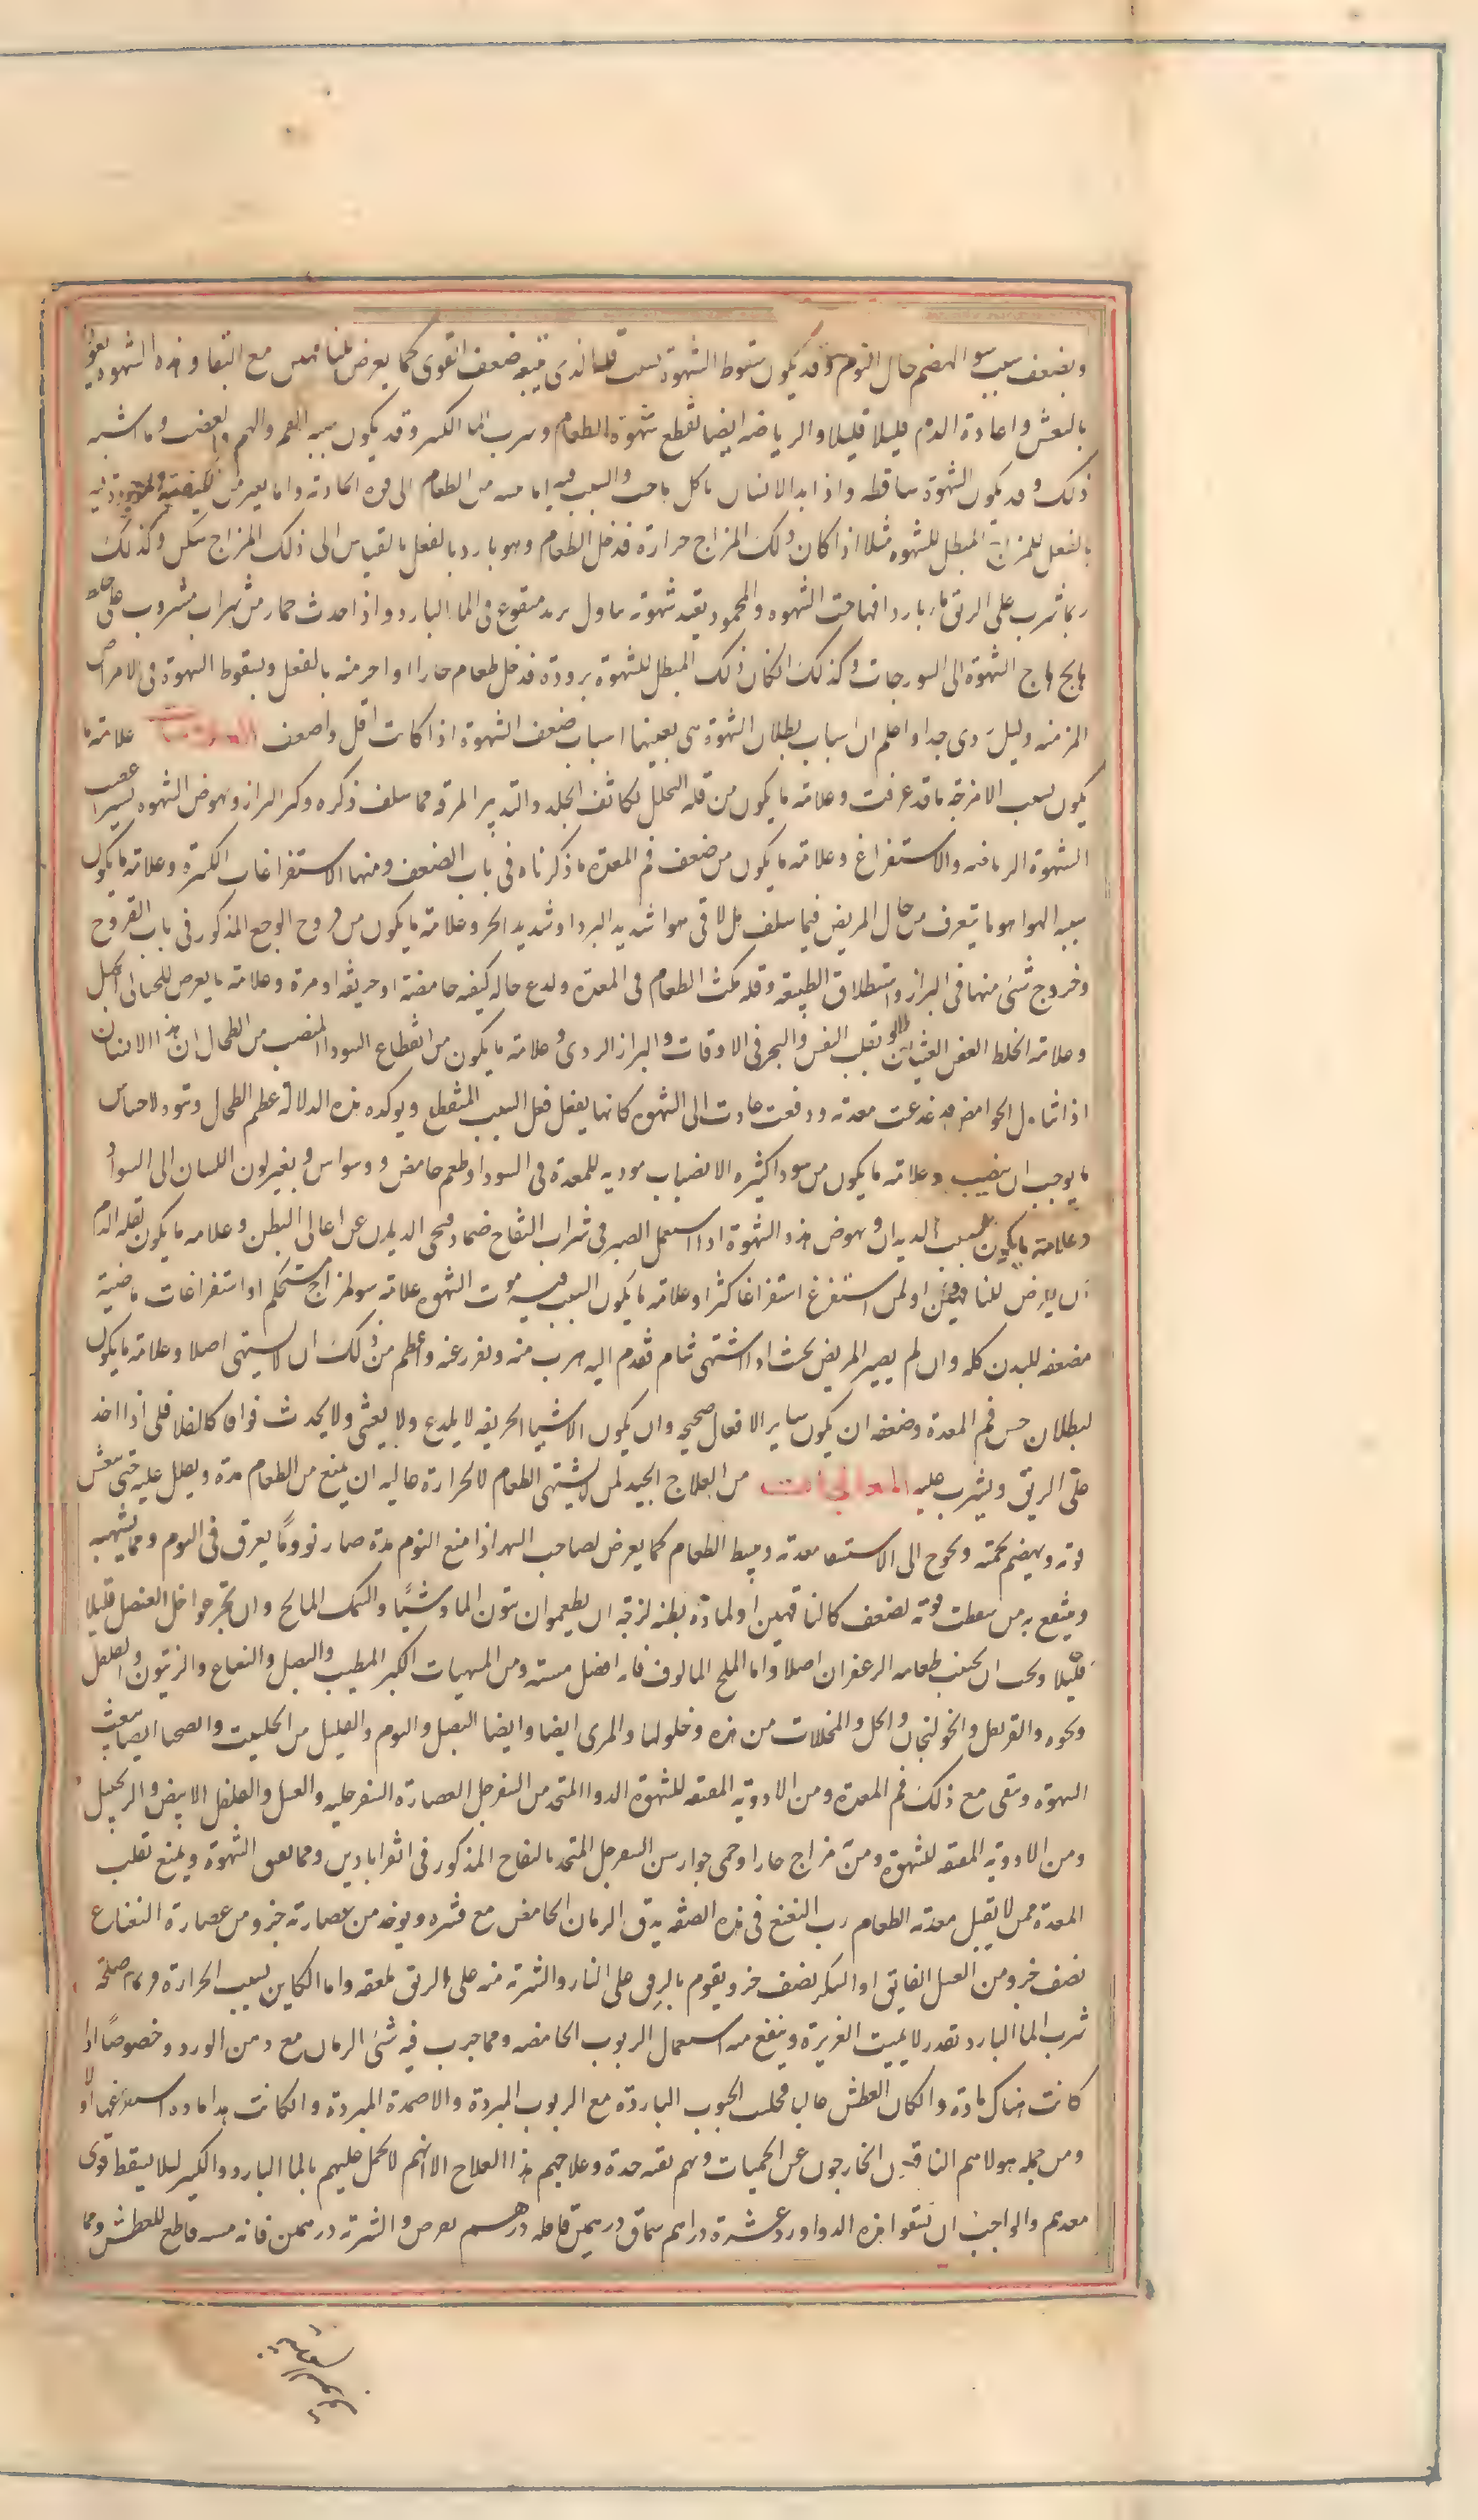 ويضعف بسبب سو الهضم حال النوم وقد يكون سقوط الشهوة بسبب قلة الدم الذي يتبعه ضعف القوى كما يعرض للناقهين مع النقا وهذه الشهوة يعود
بالتنعش واعادة الدم قليلا قليلا والرياضه ايضا تقطع شهوة الطعام وشرب الما الكثير وقد يكون سببه الغم والهم والغضب وما اشبه
ذلك وقد يكون الشهوة ساقطه واذا بدا الانسان ياكل هاجت والسبب فيه اما منبه من الطعام الى القوة الجاذبه واما تغير من الكيفية الموجودة فيه
بالفعل للمزاج المبطل للشهوه مثلا اذا كان ذلك المزاج حرارة فدخل الطعام وهو بارد بالفعل بالقياس الى ذلك المزاج سكن وكذلك
ربما شرب على الريق ما باردا فهاجت الشهوه والمحمود يعيد شهوته تناول ثريد منقوع في الما البارد واذا احدث خمار من شراب مشروب على خلط
هايج هاج الشهوة الى الشورباجات وكذلك ان كان ذلك المبطل للشهوة برودة فدخل طعام حار او احر منه بالفعل وسقوط الشهوة في الامراض
المزمنه دليل ردي جدا واعلم ان اسباب بطلان الشهوة هي بعينها اسباب ضعف الشهوة اذا كانت اقل واضعف العلامات علامة ما
يكون بسبب الامزجة ما قد عرفت وعلامة ما يكون من قله التحلل تكاثف الجلد والتدبير المرفه مما سلف ذكره وكثر البراز ونهوض الشهوه يسيرا عقيب
الشهوة الرياضه والاستفراغ وعلامة ما يكون من ضعف فم المعدة ما ذكرناه في باب الضعف ومنها الاستفراغات الكثيرة وعلامة ما يكون
سببه الهوا هو ما يتعرف من حال المريض فيما سلف هل لاقى هوا شديد البرد او شديد الحر وعلامة ما يكون من قروح الوجع المذكور في باب القروح
وخروج شئ منها في البراز واستطلاق الطبيعه وقله مكث الطعام في المعدة ولذع ماله كيفيه حامضة او حريفه او مرة وعلامة ما يعرض للحبالى الحبل
وعلامة الخلط العفن الغثيان وتقلب النفس والبخر في الاوقات والبراز الردي وعلامة ما يكون من انقطاع السودا المنصب من الطحال ان هذا الانسان
اذا تناول الحوامض فدغدغت معدته ودفعت عادت الى الشهوه كانها يفعل فعل السبب المنقطع ويوكده هذه الدلالة عظم الطحال ونتوه لاحتباس
ما يوجب ان ينصب وعلامة ما يكون من سودا كثيره الانصباب موديه للمعدة في السودا وطعم حامض ووسواس وبغير لون اللسان الى السواد
وعلامة ما يكون بسبب الديدان ونهوض هذه الشهوة اذا استعمل الصبر في شراب التفاح ضمادا ونحى الديدان عن اعالي البطن وعلامه ما يكون لقله الدم
ان يعرض للناقهين او لمن استفرغ استفراغا كثيرا وعلامة ما يكون السبب فيه موت الشهوه علامة سو المزاج مستحكم او استفراغات ماضية
مضعفه للبدن كله وان لم يصير المريض بحيث اذا اشتهى ثما ثم تقدم اليه هرب منه ونفر عنه واعظم من ذلك ان لا يشتهي اصلا وعلامة ما يكون
لبطلان حس فم المعدة وضعفه ان يكون ساير الافعال صحيحه وان يكون الاشيا الحريفه لا يلذع ولا يغثي ولا يحدث فواقا كالفلافلي اذا اخذ
على الريق ويشرب عليه المعالجات من العلاج الجيد لمن لا يشتهي الطعام لا لحرارة غاليه ان يمنع من الطعام مدة ويقلل عليه حتى تنتعش
قوته ويهضم تخمته ويحوج الى الاستنقا معدته وينشط الطعام كما يعرض لصاحب السهر اذا منع النوم مدة صار نووما يعرق في النوم ومما يشهيه
وينتفع به من سقطت قوته لضعف كالناقهين او لمادة رطبة لزجة ان يطعموا زيتون الما وشيئا والسمك المالح وان يجرعوا خل العنصل قليلا
قليلا ويجب ان يجنب طعامه الزعفران اصلا واما الملح المالوف فانه افضل مشه ومن المشهيات الكبر المطيب والبصل والنعناع والزيتون والفلفل
ونحوه والقرنفل والخولنجان والخل والمخللات من هذه وخلولها والمري ايضا وايضا البصل والثوم والقليل من الحلتيت والصحنا ايضا يبعث
الشهوة وتنقي مع ذلك فم المعدة ومن الادويه المعتقه للشهوة الدوا المتخذ من السفرجل العصارة السفرجليه والعسل والفلفل الابيض والزنجبيل
ومن الادويه المعتقه للشهوه ومن مزاج حار او حمى جوارسن السفرجل المتخذ بالتفاح المذكور في اقراباذين ومما يعين الشهوة ويمنع تقلب
المعدة ممن لا يقبل معدته الطعام رب النعنع في هذه الصفه يدق الرمان الحامض مع قشره ويوخذ من عصارته جزو ومن عصارة النعناع
نصف جزو من العسل الفايق او السكر نصف جزو يقوم بالرفق على النار والشربه منه على الريق ملعقه واما الكاين بسبب الحرارة فربما اصلحه
شرب الما البارد بقدر لا يميت الغريزة وينفع منه استعمال الربوب الحامضه ومما جرب فيه شئ الرمان مع دهن الورد وخصوصا اذا
كانت هناك مادة وان كان العطش غالبا فحلب الحبوب الباردة مع الربوب المبردة والاضمدة المبردة وان كانت هذا ماده استفرغها اولا
ومن جمله هولا هم الناقهين الخارجون عن الحميات وبهم بقيه حدة وعلاجهم هذا العلاج الا انهم لا يحمل عليهم بالما البارد والكثير ليلا يسقط قوى
معدهم والواجب ان يسقوا هذه الدوا ورد عشرة دراهم سماق درهمين قاقله درهم يقرص والشربة درهمين فانه مشه قاطع للعطش ومما